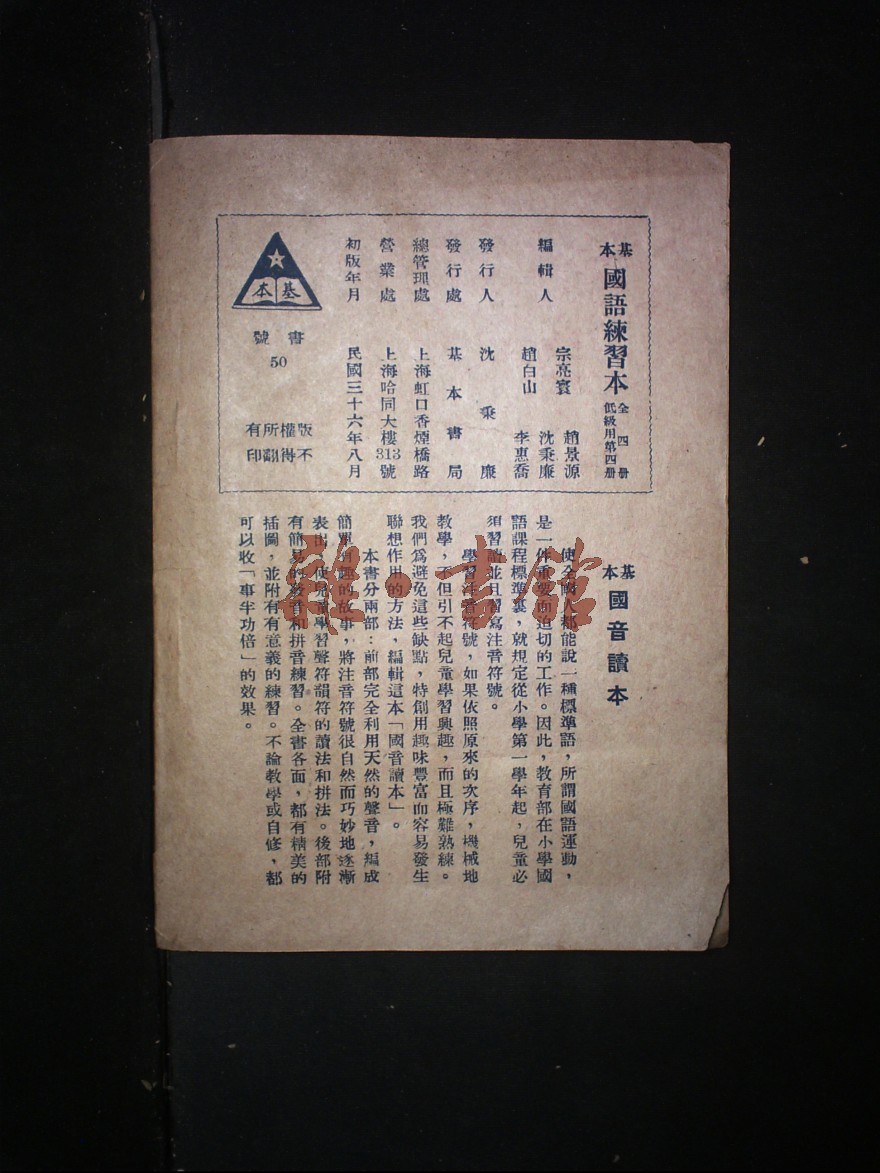 基本 國語練習本 全四册 低級用第四册
編輯人 宗亮寰 趙景源
趙白山 沈秉廉 李惠喬
發行人 沈秉廉
發行處 基本書局
總管理處 上海虹口香煙橋路
營業處 上海哈同大樓313號
初版年月 民國三十六年八月
基本
書號
50
版權所有
不得翻印
基本 國音讀本
使全國人都能說一種標準語，所謂國語運動，
是一件重要而迫切的工作。因此，教育部在小學國
語課程標準裏，就規定從小學第一學年起，兒童必
須習讀並且習寫注音符號。
學習注音符號，如果依照原來的次序，機械地
教學，不但引不起兒童學習興趣，而且極難熟練。
我們爲避免這些缺點，特創用趣味豐富而容易發生
聯想作用的方法，編輯這本「國音讀本」。
本書分兩部：前部完全利用天然的聲音，編成
簡單有趣的故事，將注音符號很自然而巧妙地逐漸
表出，使兒童學習聲符韻符的讀法和拼法。後部附
有簡易的發音和拼音練習。全書各面，都有精美的
插圖，並附有有意義的練習。不論教學或自修，都
可以收「事半功倍」的效果。
雜·書館